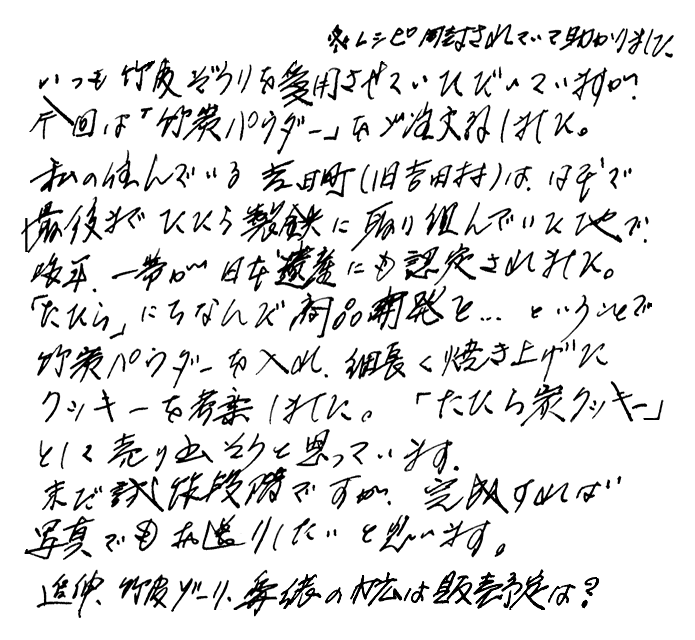 ※レシピ同封されていて助かりました
いつも竹皮ぞうりを愛用させていただいていますが、
今回は「竹炭パウダー」をご注文致しました。
私の住んでいる吉田町(旧吉田村)は、
最後までたたら製鉄に取り組んでいた地で、
昨年、一帯が日本遺産にも認定されました。
「たたら」にちなんで商品開発を…ということで
竹炭パウダーを入れ、細長く焼き上げた
クッキーを考案しました。「たたら炭クッキー」
として売り出そうと思っています。
まだ試作段階ですが、完成すれば
写真でもお送りしたいと思います。
追伸、竹皮ゾーリ、鼻緒の はは販売予定は?